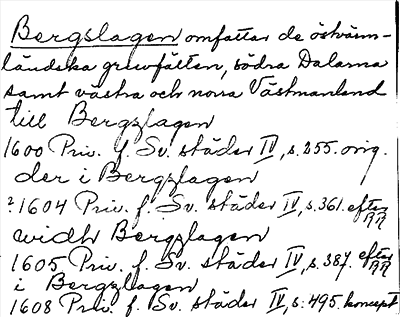 Bergslagen omfattar de östvärm-
ländska gruvfälten, södra Dalarna
samt västra och norra Västmanland
till Bergzlagen
1600 Priv. f. Sv. städer IV, s. 255. orig.
der i Bergzlagen
?1604 Priv. f. Sv. städer IV, s. 361. efter RR
widh Bergzlagen
1605 Priv. f. Sv. städer IV, s. 387. efter RR
i Bergzlagen
1608 Priv. f. Sv. städer IV, s. 495. koncept